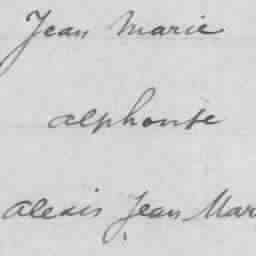 Jean Marie
alphonse
alexis Jean Mar